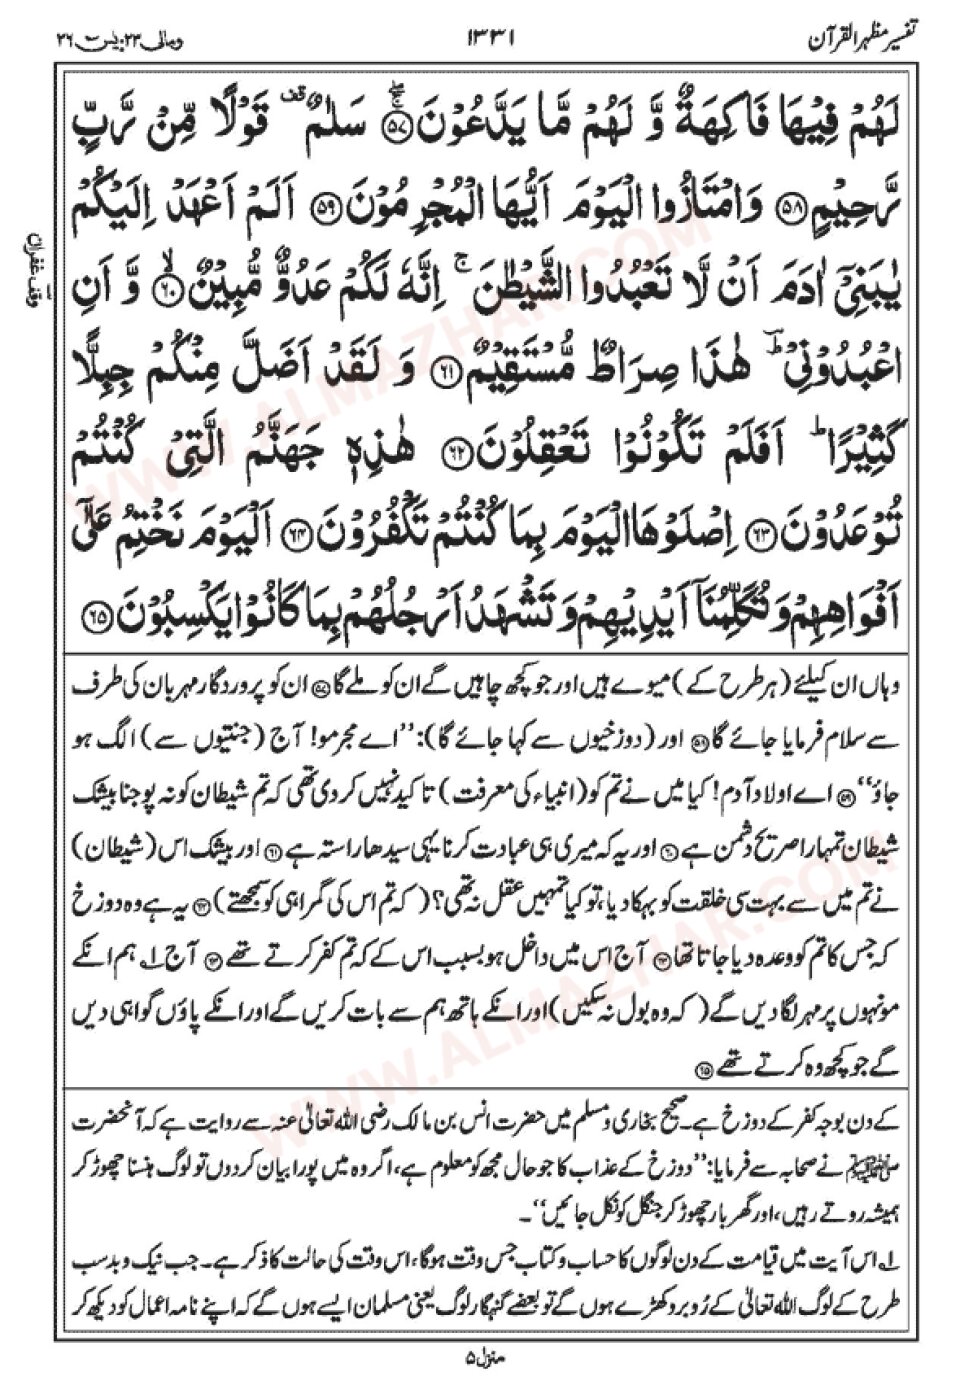 تفسیر مظہر القرآن ۱۳۳۱ ومالی ۲۳: یٰسٓ ۳۶
لَهُمْ فِيْهَا فَاكِهَةٌ وَّ لَهُمْ مَّا يَدَّعُوْنَ ﴿۵۷﴾ سَلٰمٌ ۟ قَوْلًا مِّنْ رَّبٍّ
رَّحِيْمٍ ﴿۵۸﴾ وَامْتَازُوا الْيَوْمَ اَيُّهَا الْمُجْرِمُوْنَ ﴿۵۹﴾ اَلَمْ اَعْهَدْ اِلَيْكُمْ
يٰبَنِيْٓ اٰدَمَ اَنْ لَّا تَعْبُدُوا الشَّيْطٰنَ ۚ اِنَّهٗ لَكُمْ عَدُوٌّ مُّبِيْنٌ ﴿۶۰﴾ وَّ اَنِ
اعْبُدُوْنِيْ ؕ هٰذَا صِرَاطٌ مُّسْتَقِيْمٌ ﴿۶۱﴾ وَ لَقَدْ اَضَلَّ مِنْكُمْ جِبِلًّا
كَثِيْرًا ؕ اَفَلَمْ تَكُوْنُوْا تَعْقِلُوْنَ ﴿۶۲﴾ هٰذِهٖ جَهَنَّمُ الَّتِيْ كُنْتُمْ
تُوْعَدُوْنَ ﴿۶۳﴾ اِصْلَوْهَا الْيَوْمَ بِمَا كُنْتُمْ تَكْفُرُوْنَ ﴿۶۴﴾ اَلْيَوْمَ نَخْتِمُ عَلٰٓى
اَفْوَاهِهِمْ وَ تُكَلِّمُنَآ اَيْدِيْهِمْ وَ تَشْهَدُ اَرْجُلُهُمْ بِمَا كَانُوْا يَكْسِبُوْنَ ﴿۶۵﴾
وقف غفران
وہاں ان کیلئے (ہر طرح کے) میوے ہیں اور جو کچھ چاہیں گے ان کو ملے گا ﴿۵۷﴾ ان کو پروردگار مہربان کی طرف
سے سلام فرمایا جائے گا ﴿۵۸﴾ اور (دوزخیوں سے کہا جائے گا): ’’اے مجرمو! آج (جنتیوں سے) الگ ہو
جاؤ‘‘ ﴿۵۹﴾ اے اولاد آدم! کیا میں نے تم کو (انبیاء کی معرفت) تاکید نہیں کر دی تھی کہ تم شیطان کو نہ پوجنا بیشک
شیطان تمہارا صریح دشمن ہے ﴿۶۰﴾ اور یہ کہ میری ہی عبادت کرنا یہی سیدھا راستہ ہے ﴿۶۱﴾ اور بیشک اس (شیطان)
نے تم میں سے بہت سی خلقت کو بہکا دیا، تو کیا تمہیں عقل نہ تھی؟ (کہ تم اس کی گمراہی کو سمجھتے) ﴿۶۲﴾ یہ ہے وہ دوزخ
کہ جس کا تم کو وعدہ دیا جاتا تھا ﴿۶۳﴾ آج اس میں داخل ہو بسبب اس کے کہ تم کفر کرتے تھے ﴿۶۴﴾ آج ۱؎ ہم انکے
مونہوں پر مہر لگا دیں گے (کہ وہ بول نہ سکیں) اور انکے ہاتھ ہم سے بات کریں گے اور انکے پاؤں گواہی دیں
گے جو کچھ وہ کرتے تھے ﴿۶۵﴾
کے دن بوجہ کفر کے دوزخ ہے۔ صحیح بخاری و مسلم میں حضرت انس بن مالک رضی اللہ تعالیٰ عنہ سے روایت ہے کہ آنحضرت
ﷺ نے صحابہ سے فرمایا: ’’دوزخ کے عذاب کا جو حال مجھ کو معلوم ہے، اگر وہ میں پورا بیان کر دوں تو لوگ ہنسنا چھوڑ کر
ہمیشہ روتے رہیں، اور گھر بار چھوڑ کر جنگل کو نکل جائیں‘‘۔
۱؎ اس آیت میں قیامت کے دن لوگوں کا حساب و کتاب جس وقت ہوگا، اس وقت کی حالت کا ذکر ہے۔ جب نیک و بد سب
طرح کے لوگ اللہ تعالیٰ کے رُوبرو کھڑے ہوں گے تو بعضے گنہگار لوگ یعنی مسلمان ایسے ہوں گے کہ اپنے نامہ اعمال کو دیکھ کر
منزل ۵
WWW.ALMAZHAR.COM
WWW.ALMAZHAR.COM